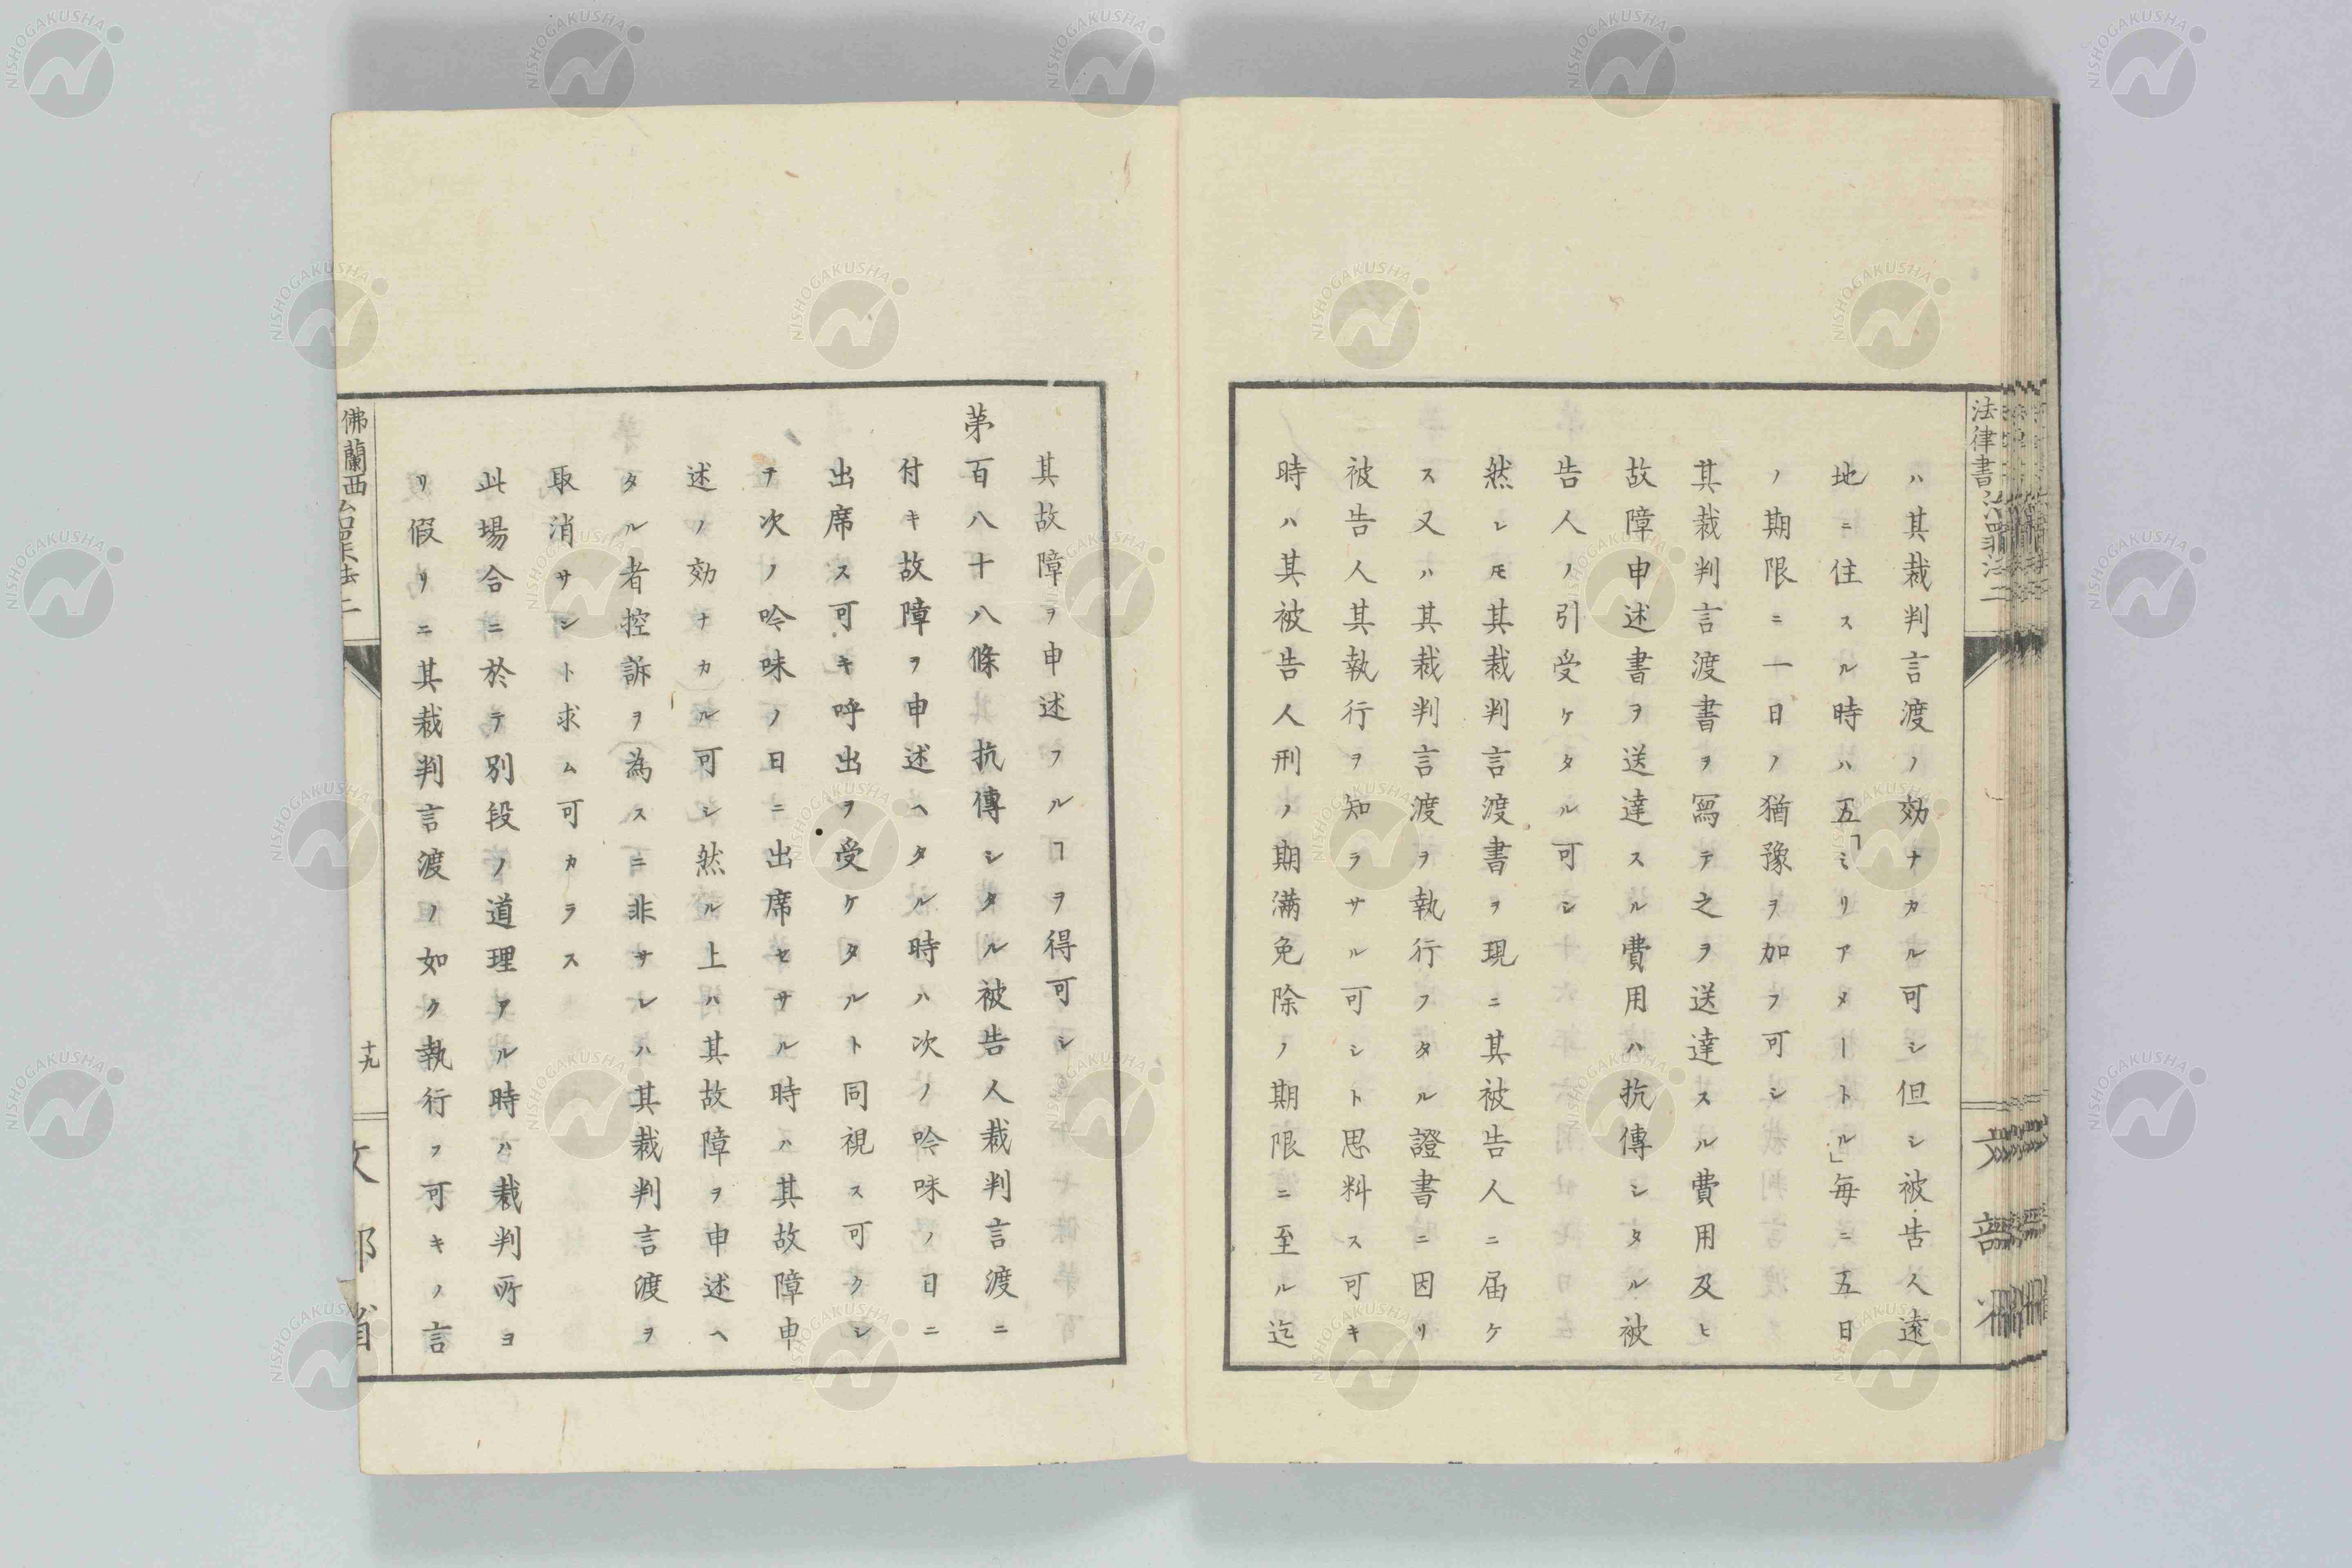 ハ其裁判言渡ノ効ナカル可シ但シ被告人遠
地ニ住スル時ハ五「ミリアメートル」毎ニ五日
ノ期限ニ一日ノ猶豫ヲ加フ可シ
其裁判言渡書ヲ寫テ之ヲ送達スル費用及ヒ
故障申述書ヲ送達スル費用ハ抗傳シタル被
告人ノ引受ケタル可シ
然レ𪜈其裁判言渡書ヲ現ニ其被告人ニ届ケ
ス又ハ其裁判言渡ヲ執行フタル證書ニ因リ
被告人其執行ヲ知ラサル可シト思料ス可キ
時ハ其被告人刑ノ期満免除ノ期限ニ至ル迄
法律書治罪法二
文部省
其故障ヲ申述フルヿヲ得可シ
第百八十八條 抗傳シタル被告人裁判言渡ニ
付キ故障ヲ申述ヘタル時ハ次ノ吟味ノ日ニ
出席ス可キ呼出ヲ受ケタルト同視ス可クシ
テ次ノ吟味ノ日ニ出席セサル時ハ其故障申
述ノ効ナカル可シ然ル上ハ其故障ヲ申述ヘ
タル者控訴ヲ為スニ非サレハ其裁判言渡ヲ
取消サシト求ム可カラス
此場合ニ於テ別段ノ道理アル時ハ裁判所ヨ
リ假リニ其裁判言渡ノ如ク執行フ可キノ言
佛蘭西治罪法二
十九
文部省
NISHOGAKUSHA